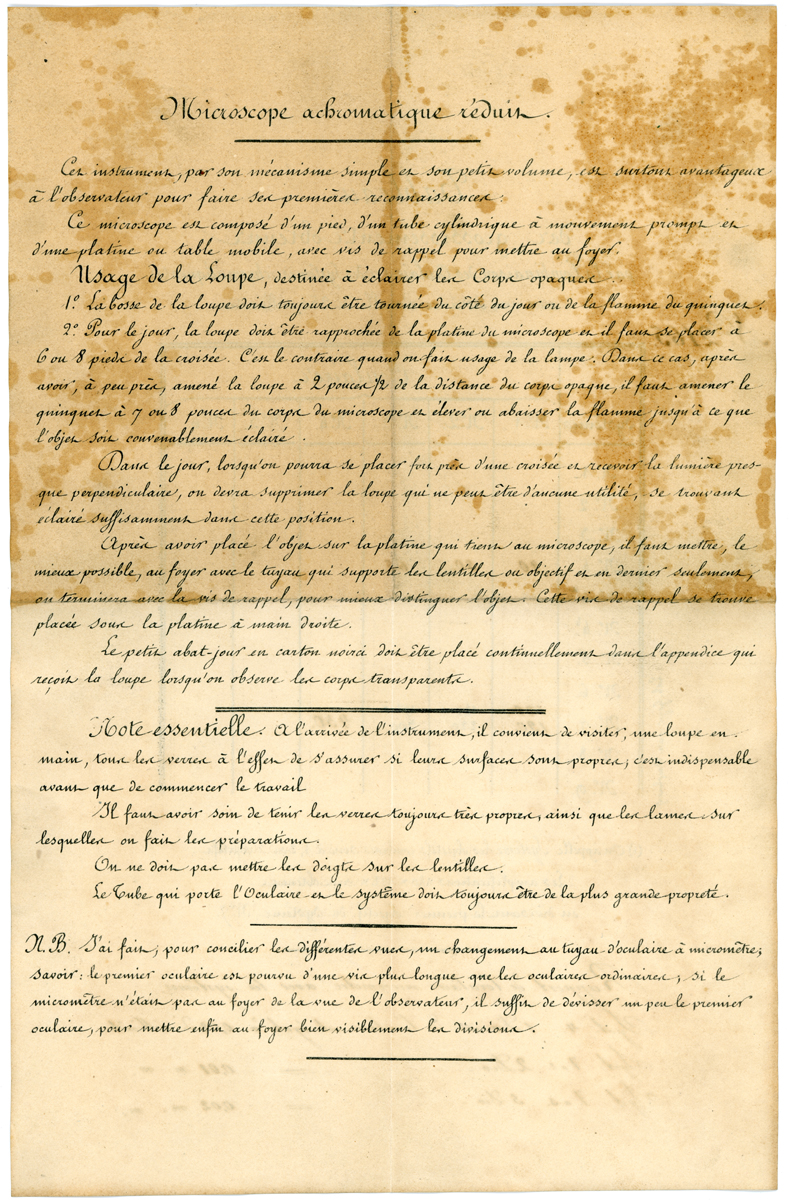 Microscope achromatique réduit.
Cet instrument, par son mécanisme simple et son petit volume, est surtout avantageux
à l'observateur pour faire ses premières reconnaissances.
Ce microscope est composé d'un pied, d'un tube cylindrique à mouvement prompt et
d'une platine ou table mobile, avec vis de rappel pour mettre au foyer.
Usage de la Loupe, destinée à éclairer les Corps opaques.
1º. La bosse de la loupe doit toujours être tournée du côté du jour ou de la flamme du quinquet.
2º. Pour le jour, la loupe doit être rapprochée de la platine du microscope et il faut se placer à
6 ou 8 pieds de la croisée. C'est le contraire quand on fait usage de la lampe. Dans ce cas, après
avoir, à peu près, amené la loupe à 2 pouces 1/2 de la distance du corps opaque, il faut amener le
quinquet à 7 ou 8 pouces du corps du microscope et élever ou abaisser la flamme jusqu'à ce que
l'objet soit convenablement éclairé.
Dans le jour, lorsqu'on pourra se placer fort près d'une croisée et recevoir la lumière pres-
que perpendiculaire, on devra supprimer la loupe qui ne peut être d'aucune utilité, se trouvant
éclairé suffisamment dans cette position.
Après avoir placé l'objet sur la platine qui tient au microscope, il faut mettre, le
mieux possible, au foyer avec le tuyau qui supporte les lentilles ou objectif et en dernier seulement,
on terminera avec la vis de rappel, pour mieux distinguer l'objet. Cette vis de rappel se trouve
placée sous la platine à main droite.
Le petit abat-jour en carton noirci doit être placé continuellement dans l'appendice qui
reçoit la loupe lorsqu'on observe les corps transparents.
Note essentielle. A l'arrivée de l'instrument, il convient de visiter, une loupe en
main, tous les verres à l'effet de s'assurer si leurs surfaces sont propres; c'est indispensable
avant que de commencer le travail
Il faut avoir soin de tenir les verres toujours très propres, ainsi que les lames sur
lesquelles on fait les préparations.
On ne doit pas mettre les doigts sur les lentilles.
Le Tube qui porte l'Oculaire et le système doit toujours être de la plus grande propreté.
N.B. J'ai fait, pour concilier les différentes vues, un changement au tuyau d'oculaire à micromètre;
savoir: le premier oculaire est pourvu d'une vis plus longue que les oculaires ordinaires; si le
micromètre n'était pas au foyer de la vue de l'observateur, il suffit de dévisser un peu le premier
oculaire, pour mettre enfin au foyer bien visiblement les divisions.